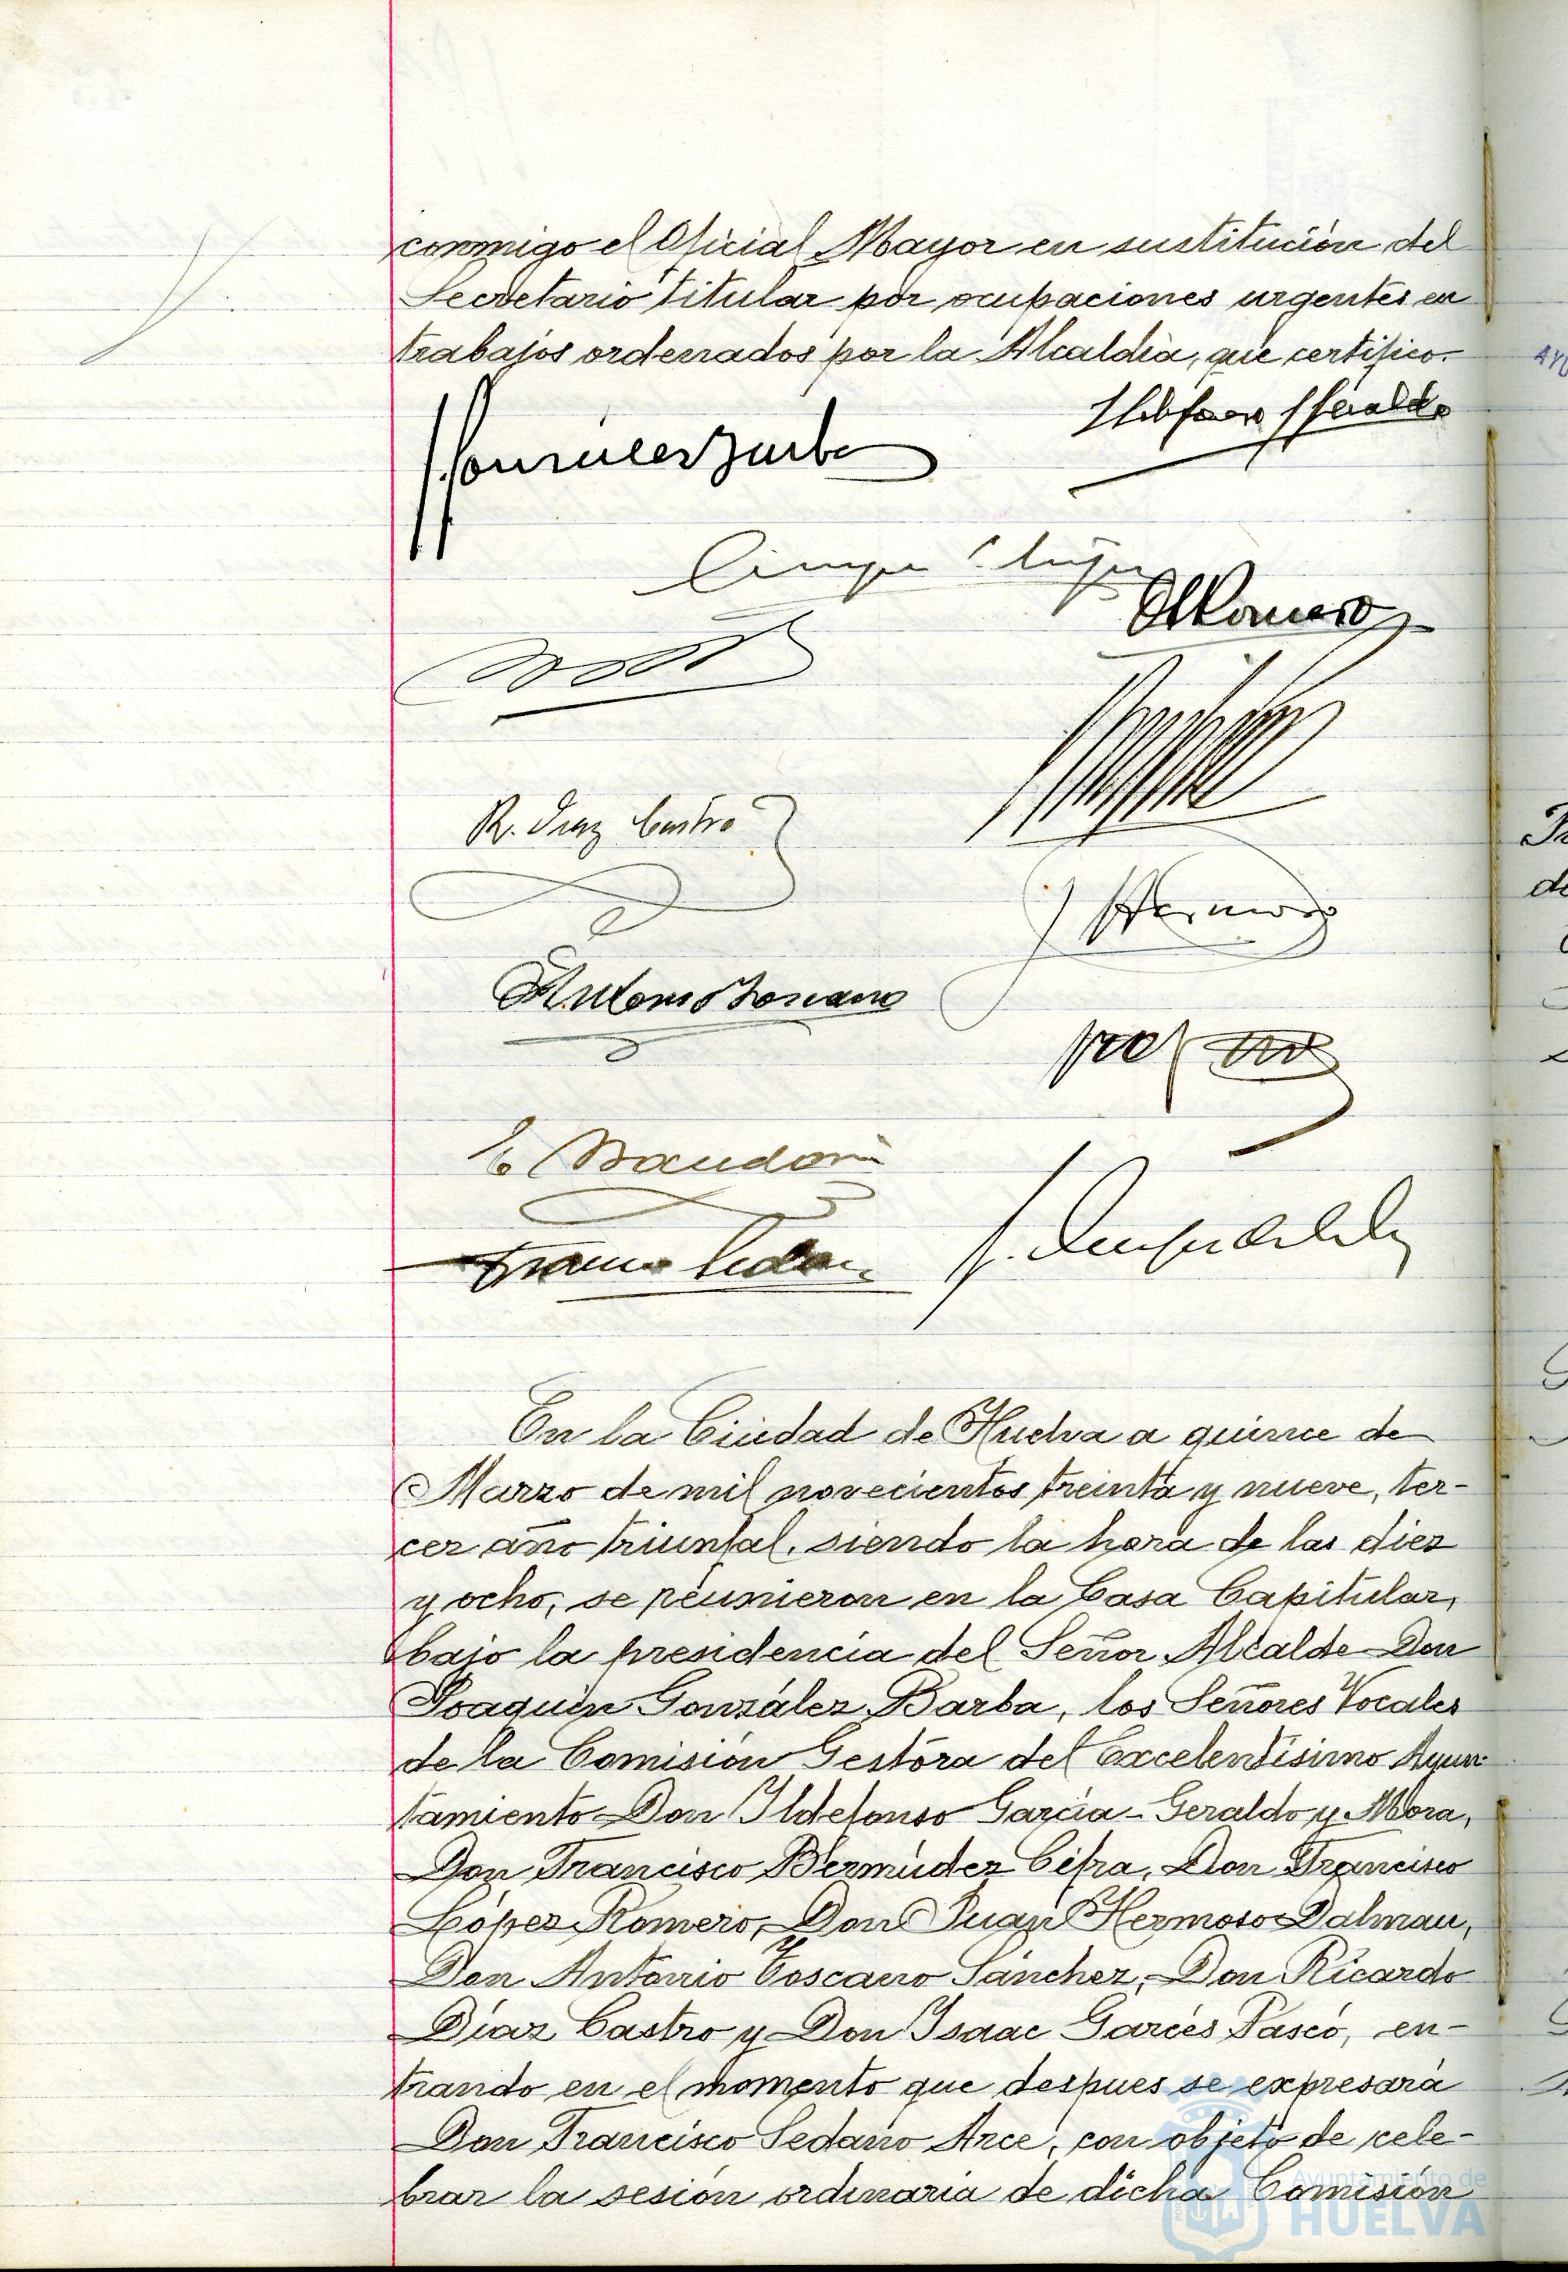 conmigo el Oficial Mayor en sustitución del
Secretario titular por ocupaciones urgentes en
trabajos ordenados por la Alcaldía, que certifico.
R. Diaz Castro
J Hermoso
Antonio Toscano
En la Ciudad de Huelva a quince de
Marzo de mil novecientos treinta y nueve, ter-
cer año triunfal, siendo la hora de las diez
y ocho, se reunieron en la Casa Capitular,
bajo la presidencia del Señor Alcalde Don
Joaquín González Barba, los Señores Vocales
de la Comisión Gestora del Excelentísimo Ayun-
tamiento Don Ildefonso García-Geraldo y Mora,
Don Francisco Bermúdez Cifra, Don Francisco
López Romero, Don Juan Hermoso Dalmau,
Don Antonio Toscano Sánchez, Don Ricardo
Díaz Castro y Don Isaac Garcés Pascó, en-
trando en el momento que despues se expresará
Don Francisco Sedano Arce, con objeto de cele-
brar la sesión ordinaria de dicha Comisión
Ayuntamiento de
HUELVA